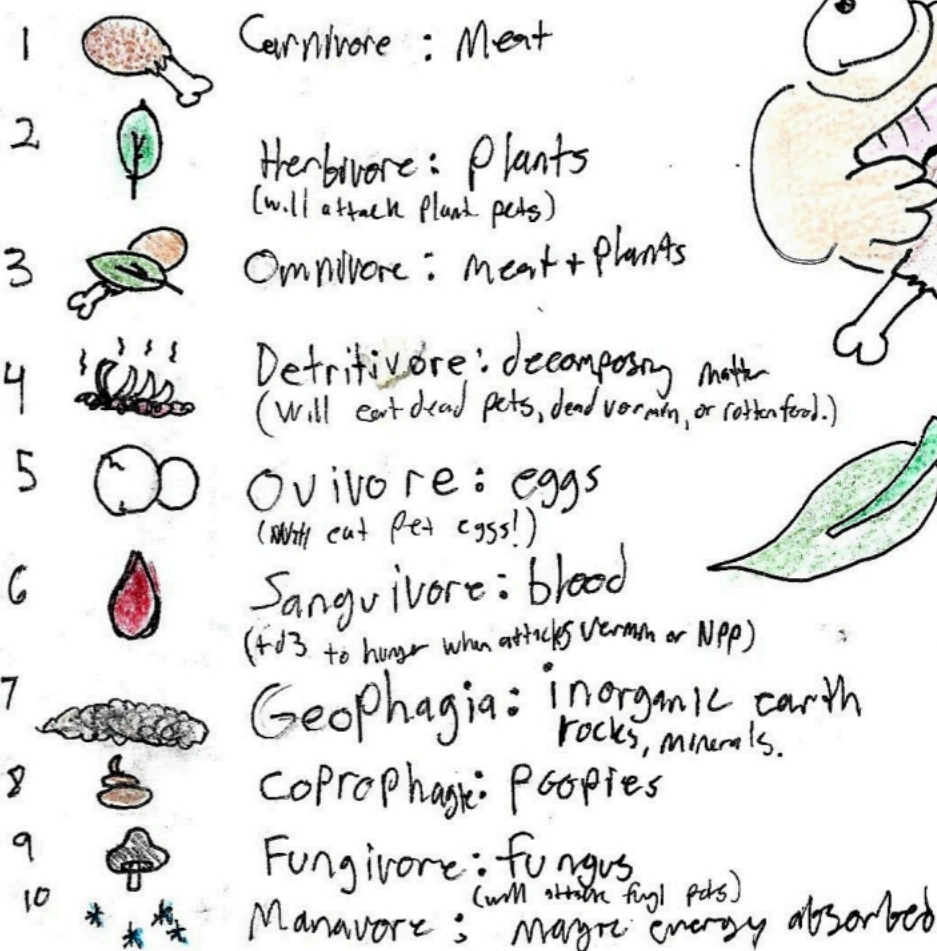 1 Carnivore : Meat
2 Herbivore : Plants
(will attack Plant pets)
3 Omnivore : meat + Plants
4 Detritivore : decomposing matter
(Will eat dead pets, dead vermin, or rotten food.)
5 Ovivore : eggs
(Will eat Pet eggs!)
6 Sanguivore : blood
(+d3 to hunger when attacks vermin or NPP)
7 Geophagia : inorganic earth
rocks, minerals.
8 Coprophagic : Poopies
9 Fungivore : fungus
(will attack fungi pets)
10 Manavore : magic energy absorbed